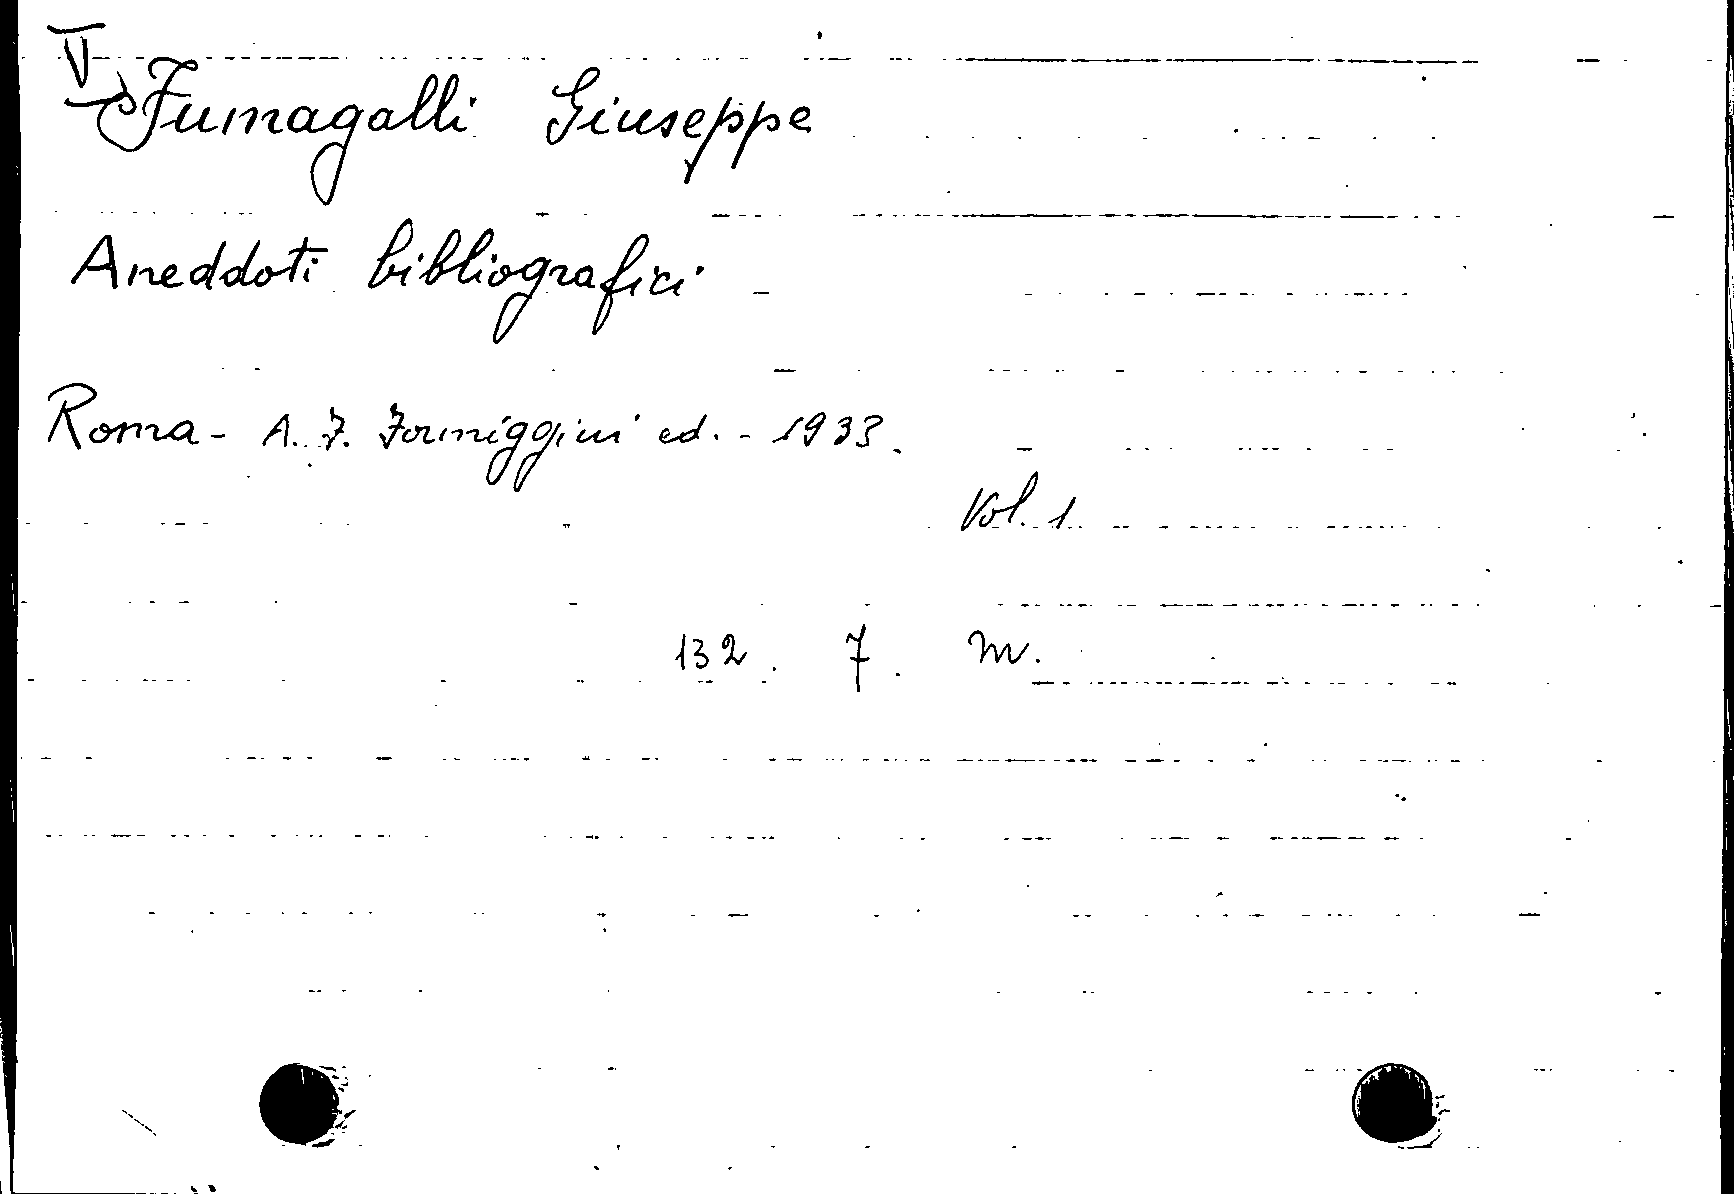 V
Fumagalli Giuseppe
Aneddoti bibliografici
Roma - A. F. Formiggini ed. - 1933.
Vol. 1
132. 7. M.